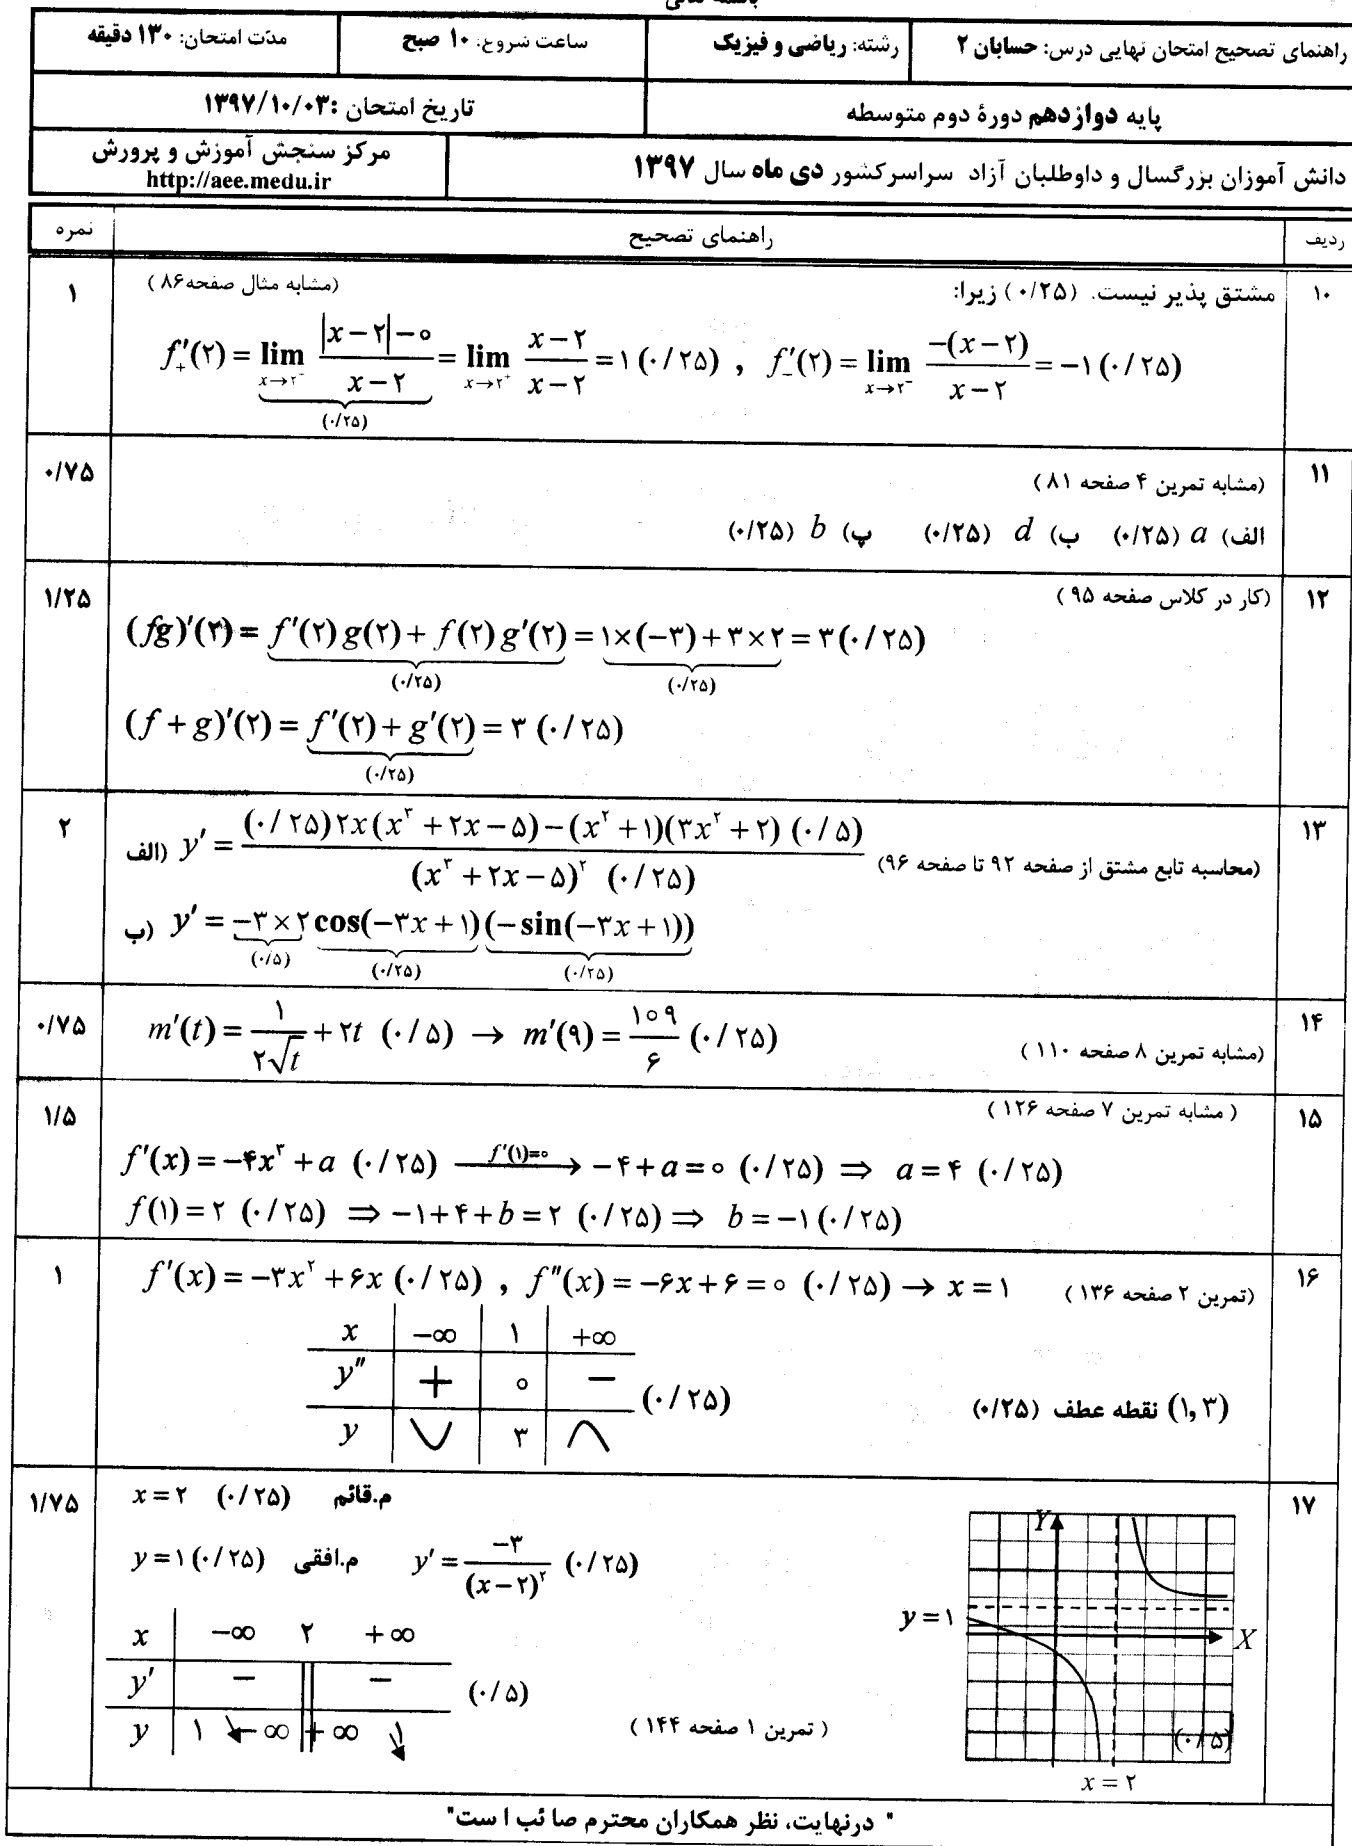 راهنمای تصحیح امتحان نهایی درس: حسابان ۲ رشته: ریاضی و فیزیک ساعت شروع: ۱۰ صبح مدّت امتحان: ۱۳۰ دقیقه
پایه دوازدهم دورهٔ دوم متوسطه تاریخ امتحان :۱۳۹۷/۱۰/۰۳
دانش آموزان بزرگسال و داوطلبان آزاد سراسرکشور دی ماه سال ۱۳۹۷ مرکز سنجش آموزش و پرورش
http://aee.medu.ir
ردیف راهنمای تصحیح نمره
۱۰ مشتق پذیر نیست. (۰/۲۵) زیرا: (مشابه مثال صفحه۸۶) ۱
f′₊(۲) = lim x→۲⁻ (|x−۲|−۰)/(x−۲) (۰/۲۵) = lim x→۲⁺ (x−۲)/(x−۲) = ۱ (۰/۲۵) , f′₋(۲) = lim x→۲⁻ −(x−۲)/(x−۲) = −۱ (۰/۲۵)
۱۱ (مشابه تمرین ۴ صفحه ۸۱) ۰/۷۵
الف) a (۰/۲۵) ب) d (۰/۲۵) پ) b (۰/۲۵)
۱۲ (کار در کلاس صفحه ۹۵) ۱/۲۵
(fg)′(۲) = f′(۲)g(۲) + f(۲)g′(۲) (۰/۲۵) = ۱×(−۳)+۳×۲ (۰/۲۵) = ۳ (۰/۲۵)
(f+g)′(۲) = f′(۲)+g′(۲) (۰/۲۵) = ۳ (۰/۲۵)
۱۳ (محاسبه تابع مشتق از صفحه ۹۲ تا صفحه ۹۶) ۲
الف) y′ = ((۰/۲۵) ۲x(x³+۲x−۵)−(x²+۱)(۳x²+۲) (۰/۵)) / ((x³+۲x−۵)² (۰/۲۵))
ب) y′ = −۳×۲ (۰/۵) cos(−۳x+۱) (۰/۲۵) (−sin(−۳x+۱)) (۰/۲۵)
۱۴ (مشابه تمرین ۸ صفحه ۱۱۰) ۰/۷۵
m′(t) = ۱/(۲√t) + ۲t (۰/۵) → m′(۹) = ۱۰۹/۶ (۰/۲۵)
۱۵ (مشابه تمرین ۷ صفحه ۱۲۶) ۱/۵
f′(x) = −۴x³ + a (۰/۲۵) f′(۱)=۰ → −۴+a=۰ (۰/۲۵) ⇒ a=۴ (۰/۲۵)
f(۱)=۲ (۰/۲۵) ⇒ −۱+۴+b=۲ (۰/۲۵) ⇒ b=−۱ (۰/۲۵)
۱۶ (تمرین ۲ صفحه ۱۳۶) ۱
f′(x) = −۳x²+۶x (۰/۲۵) , f″(x) = −۶x+۶=۰ (۰/۲۵) → x=۱
x −∞ ۱ +∞
y″ + ۰ − (۰/۲۵)
y ۳
(۱,۳) نقطه عطف (۰/۲۵)
۱۷ ۱/۷۵
x=۲ (۰/۲۵) م.قائم
y=۱ (۰/۲۵) م.افقی y′ = −۳/(x−۲)² (۰/۲۵)
x −∞ ۲ +∞
y′ − − (۰/۵)
y ۱ −∞ +∞ ۱
(تمرین ۱ صفحه ۱۴۴)
Y
y=۱
X
(۰/۵)
x=۲
" درنهایت، نظر همکاران محترم صائب است"